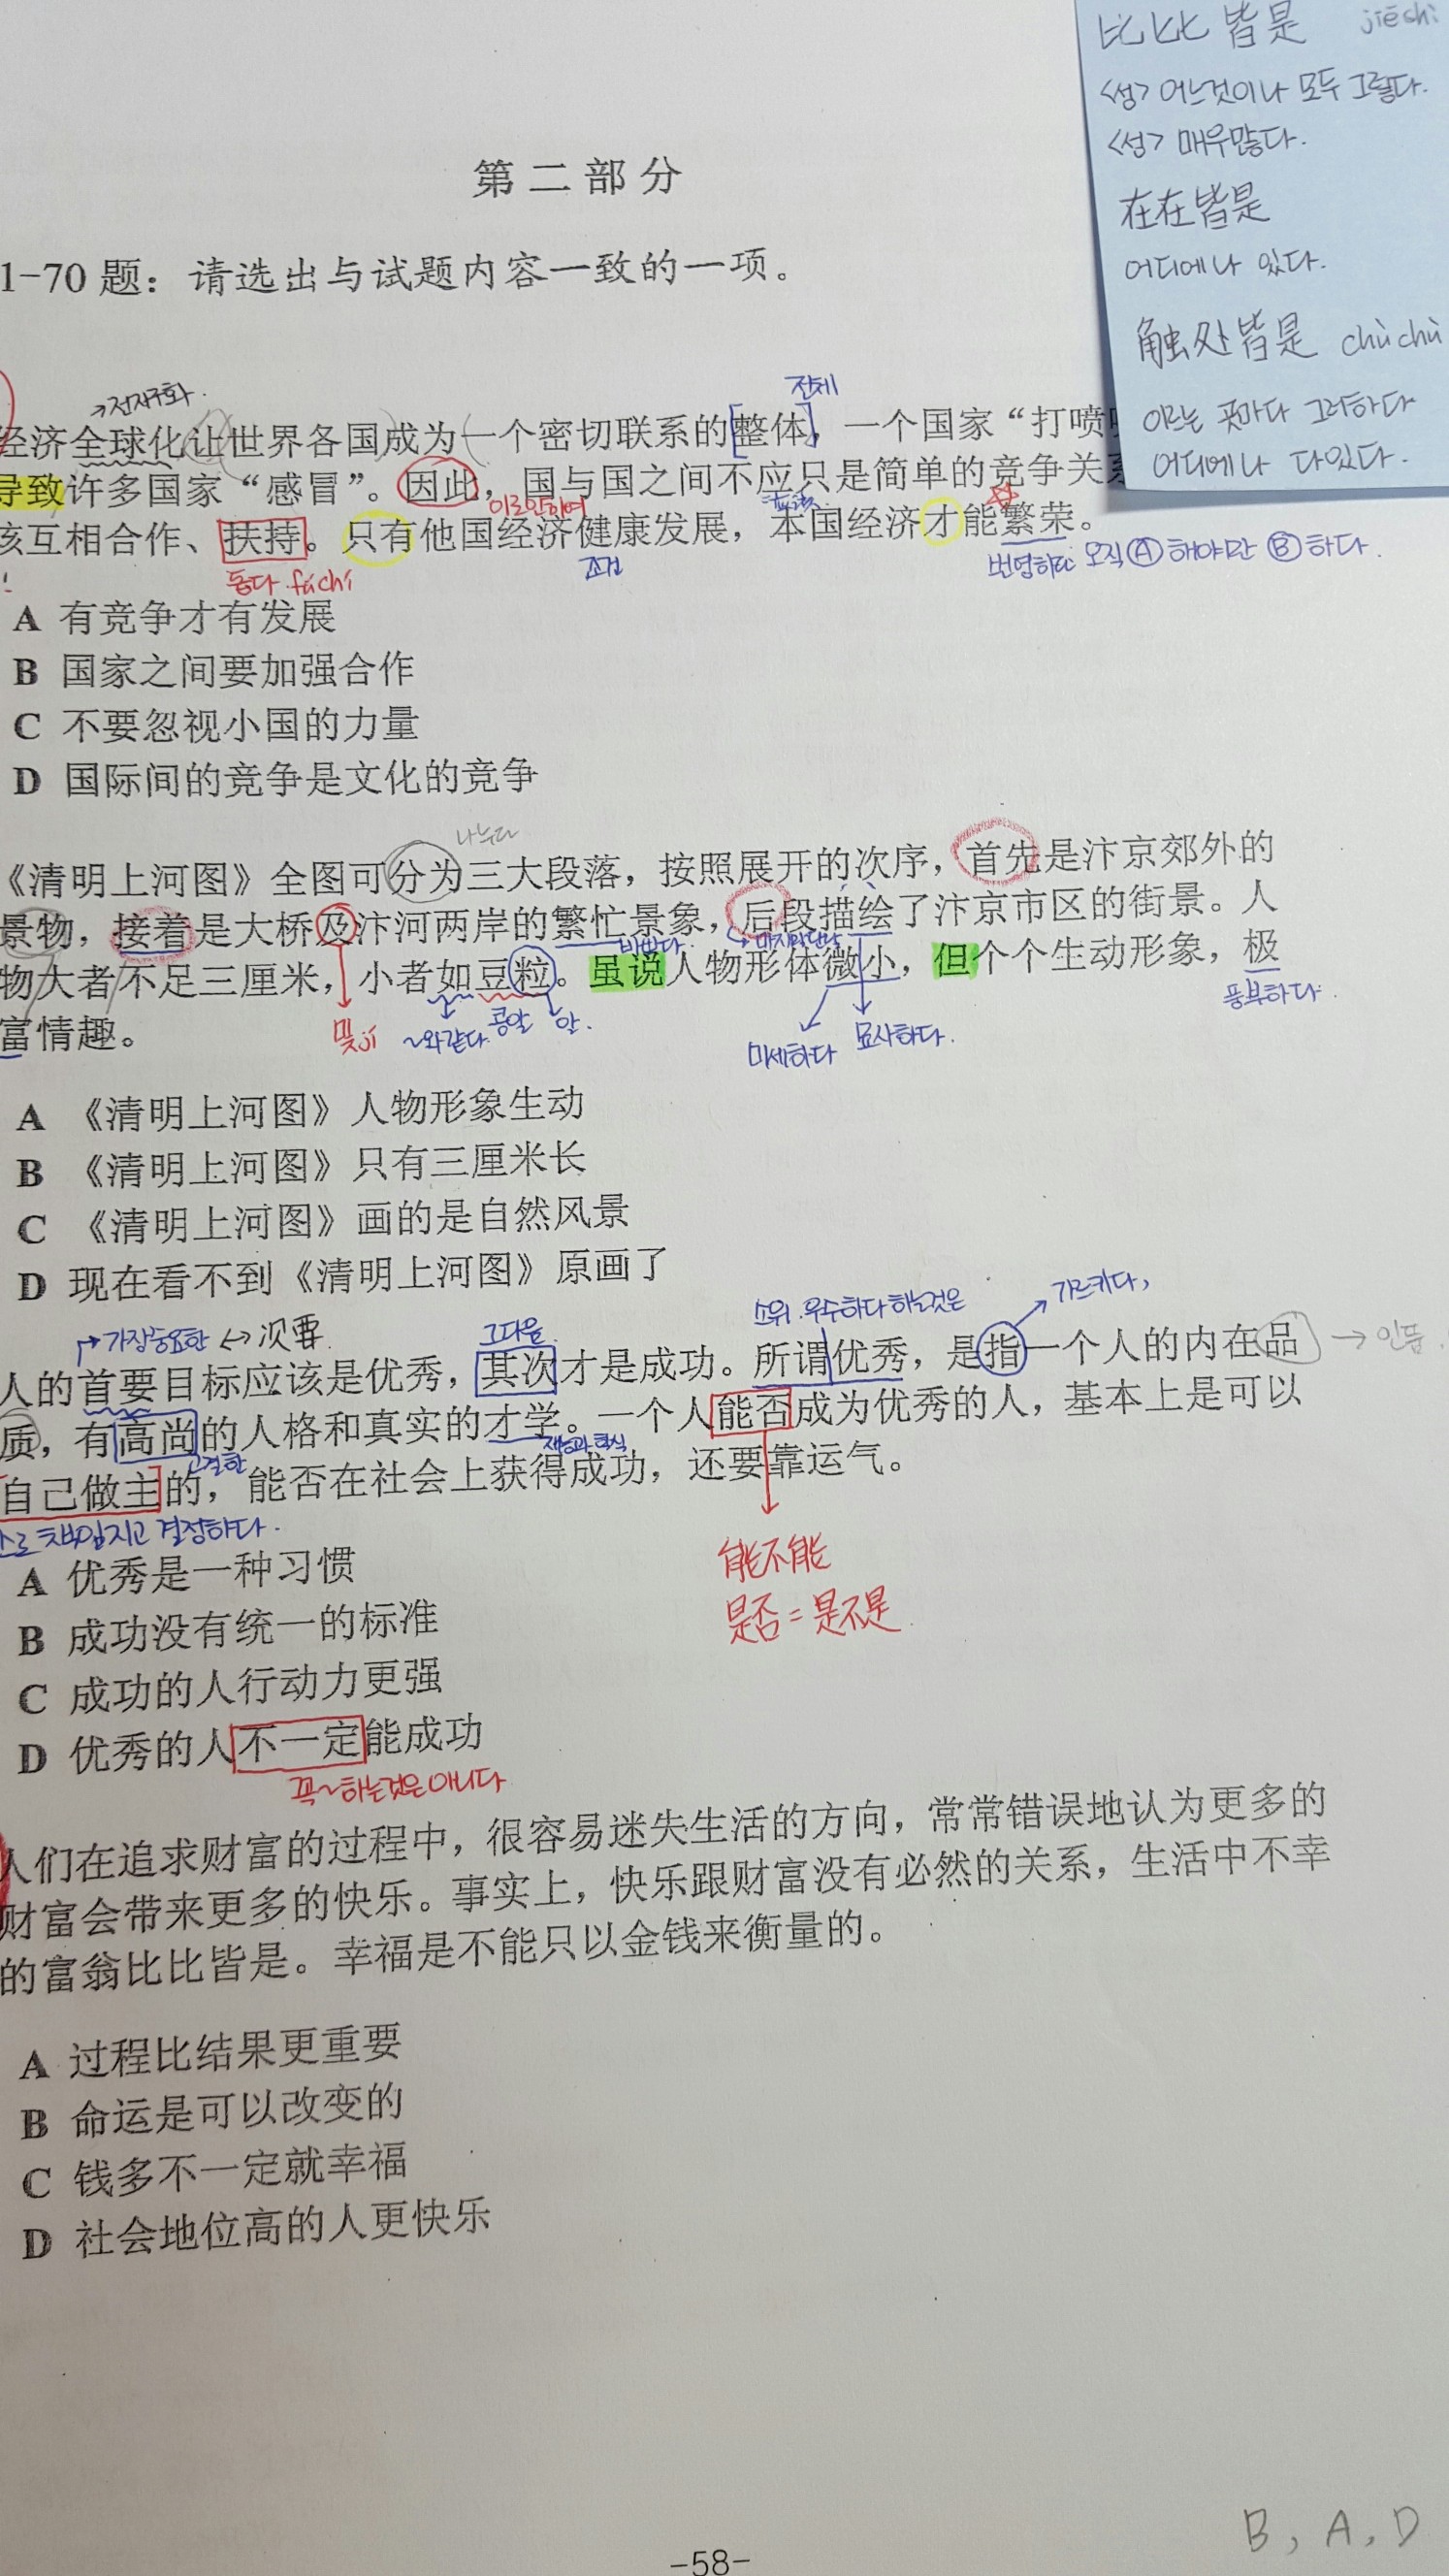 比比皆是 jiēshì
<성> 어느것이나 모두 그렇다.
<성> 매우많다.
在在皆是
어디에나 있다.
触处皆是 chùchù
이르는 곳마다 그러하다
어디에나 다있다.
第二部分
1-70题：请选出与试题内容一致的一项。
→전지구화.
전체
经济全球化让世界各国成为一个密切联系的整体，一个国家“打喷
导致许多国家“感冒”。因此，国与国之间不应只是简单的竞争关系
이로인하여
该互相合作、扶持。只有他国经济健康发展，本国经济才能繁荣。
돕다 fúchí
조건
번영하다 오직 Ⓐ 해야만 Ⓑ 하다.
A 有竞争才有发展
B 国家之间要加强合作
C 不要忽视小国的力量
D 国际间的竞争是文化的竞争
나누다
《清明上河图》全图可分为三大段落，按照展开的次序，首先是汴京郊外的
景物，接着是大桥及汴河两岸的繁忙景象，后段描绘了汴京市区的街景。人
바쁘다.
마지막단락
物大者不足三厘米，小者如豆粒。虽说人物形体微小，但个个生动形象，极
풍부하다.
富情趣。
및jí
~와같다.
콩알
알.
미세하다
묘사하다.
A 《清明上河图》人物形象生动
B 《清明上河图》只有三厘米长
C 《清明上河图》画的是自然风景
D 现在看不到《清明上河图》原画了
→가장중요한 ↔ 次要.
그다음
소위. 우수하다 하는것은
가르키다,
人的首要目标应该是优秀，其次才是成功。所谓优秀，是指一个人的内在品
→인품.
质，有高尚的人格和真实的才学。一个人能否成为优秀的人，基本上是可以
고결한
재능과 학식
自己做主的，能否在社会上获得成功，还要靠运气。
스로 책임지고 결정하다.
能不能
是否=是不是
A 优秀是一种习惯
B 成功没有统一的标准
C 成功的人行动力更强
D 优秀的人不一定能成功
꼭~하는것은아니다
人们在追求财富的过程中，很容易迷失生活的方向，常常错误地认为更多的
财富会带来更多的快乐。事实上，快乐跟财富没有必然的关系，生活中不幸
的富翁比比皆是。幸福是不能只以金钱来衡量的。
A 过程比结果更重要
B 命运是可以改变的
C 钱多不一定就幸福
D 社会地位高的人更快乐
B, A, D
-58-